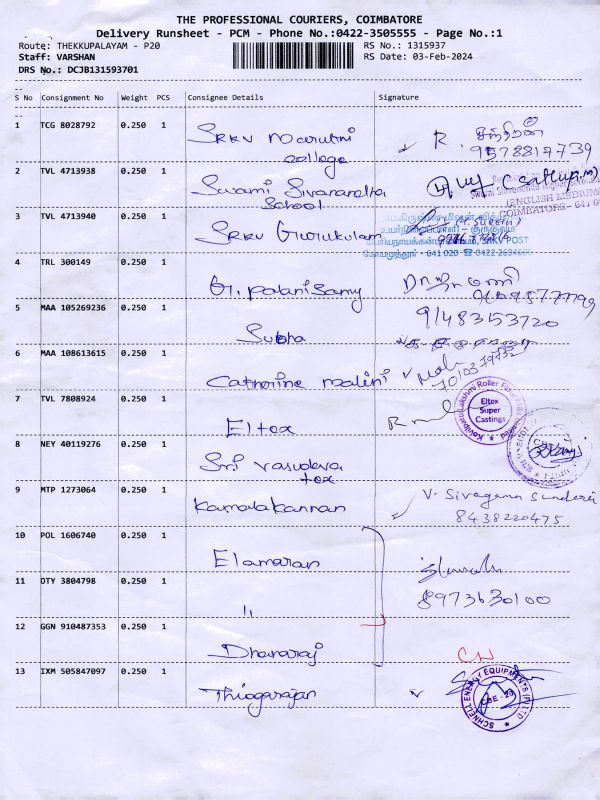 THE PROFESSIONAL COURIERS, COIMBATORE
Delivery Runsheet - PCM - Phone No.:0422-3505555 - Page No.:1
Route: THEKKUPALAYAM - P20
RS No.: 1315937
Staff: VARSHAN
RS Date: 03-Feb-2024
DRS No.: DCJB131593701
S No Consignment No Weight PCS Consignee Details Signature
1 TCG 8028792 0.250 1 SRKV Maruthi College R. 9578817739
2 TVL 4713938 0.250 1 Swami Sivanandha School
(ENGLISH MEDIUM)
3 TVL 4713940 0.250 1 SRKV Gurukulam
SRKV POST
641 020 ☎ 0422-2694695
4 TRL 300149 0.250 1 Gr. Palanisamy
5 MAA 105269236 0.250 1 Subha 9148353720
6 MAA 108613615 0.250 1 Catherine Malini
7 TVL 7808924 0.250 1 Eltex
Eltex Super Castings
8 NEY 40119276 0.250 1 Sri Vasudeva tex
9 MTP 1273064 0.250 1 Kamalakannan V. Sivagama Sunderi
8438220475
10 POL 1606740 0.250 1 Elamaran
11 OTY 3804798 0.250 1 " 8973630100
12 GGN 910487353 0.250 1 Dhanaraj
13 IXM 505847097 0.250 1 Thiogarajan
SCHNELL ENERGY EQUIPMENTS (P) LTD
CBE - 20